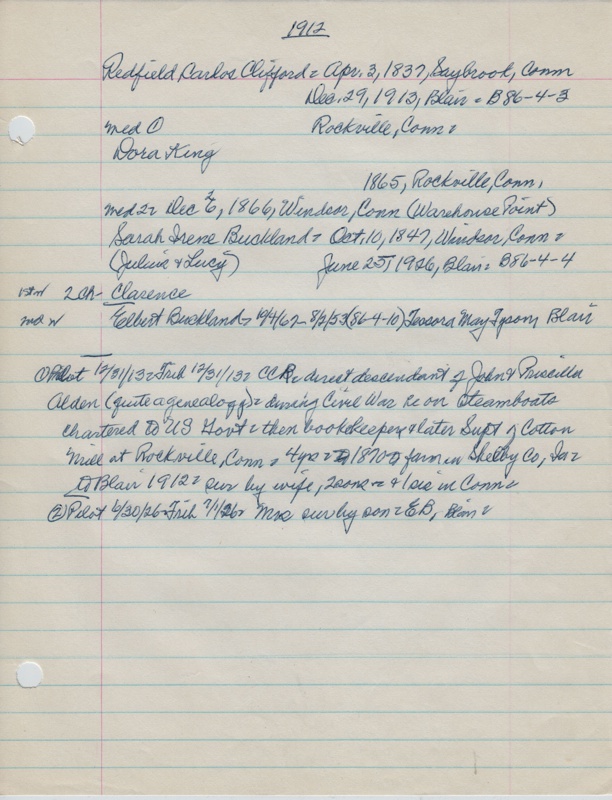 1912
Redfield, Carlos Clifford = Apr. 3, 1837, Saybrook, Conn
Dec. 29, 1913, Blair = B86-4-3
med ① Rockville, Conn =
Dora King
1865, Rockville, Conn.
med 2 = Dec 6, 1866, Windsor, Conn (Warehouse Point)
Sarah Irene Buckland = Oct. 10, 1847, Windsor, Conn =
(Julius & Lucy) June 25, 1926, Blair = B86-4-4
1st w 2 ch - Clarence
2nd w Elbert Buckland = 8/2/53 (86-4-10) Tessora May Tyson, Blair
① Pilot 12/31/13 = Trib 12/31/13 = CCR = direct descendant of John & Priscilla
Alden (quite a genealogy) = during Civil War he on steamboats
chartered to US Govt = then bookkeeper & later Supt of Cotton
Mill at Rockville, Conn = 4 yrs = 1870 = farm in Shelby Co, Ia =
to Blair 1912 = sur by wife, 2 sons = & 1 sis in Conn =
② Pilot 6/30/26 = Trib 7/1/26 = Mrs sur by son = EB, Blair =